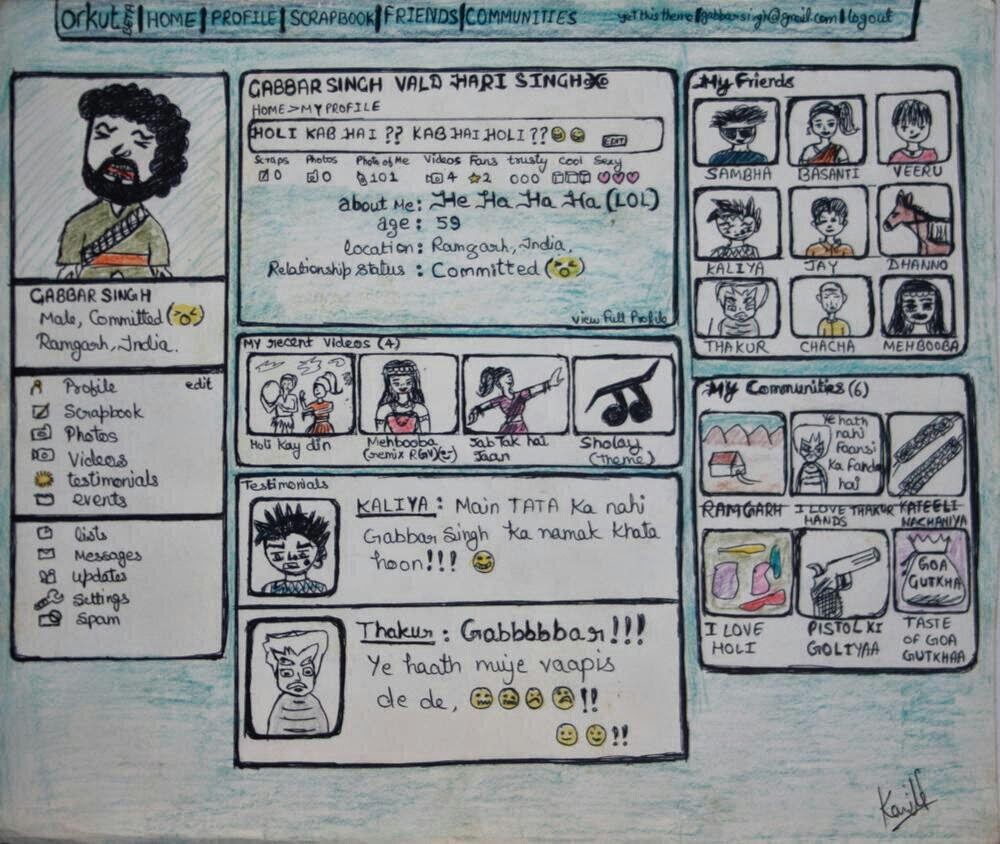 orkut BETA HOME PROFILE SCRAPBOOK FRIENDS COMMUNITIES get this theme gabbarsingh@gmail.com logout
GABBAR SINGH
Male, Committed
Ramgarh, India.
Profile edit
Scrapbook
Photos
Videos
testimonials
events
lists
Messages
updates
Settings
Spam
GABBAR SINGH VALD HARI SINGH
HOME > MY PROFILE
HOLI KAB HAI ?? KAB HAI HOLI ?? EDIT
Scraps Photos Photo of Me Videos Fans trusty cool Sexy
0 0 101 4 2
about Me: He Ha Ha Ha (LOL)
age : 59
location : Ramgarh, India,
Relationship Status : Committed
view Full Profile
My recent Videos (4)
Holi Kay din
Mehbooba
(remix RGV)
Jab Tak hai
Jaan
Sholay
(Theme)
Testimonials
KALIYA : Main TATA Ka nahi
Gabbar Singh Ka namak khata
hoon!!!
Thakur : Gabbbbbar!!!
Ye haath muje vaapis
de de, !!
!!
My Friends
SAMBHA BASANTI VEERU
KALIYA JAY DHANNO
THAKUR CHACHA MEHBOOBA
My Communities (6)
Ye hath
nahi
Faansi
Ka Fanda
hai
RAMGARH
I LOVE THAKUR
HANDS
KATEELI
NACHANIYA
GOA
GUTKHA
I LOVE
HOLI
PISTOL KI
GOLIYAA
TASTE
OF GOA
GUTKHAA